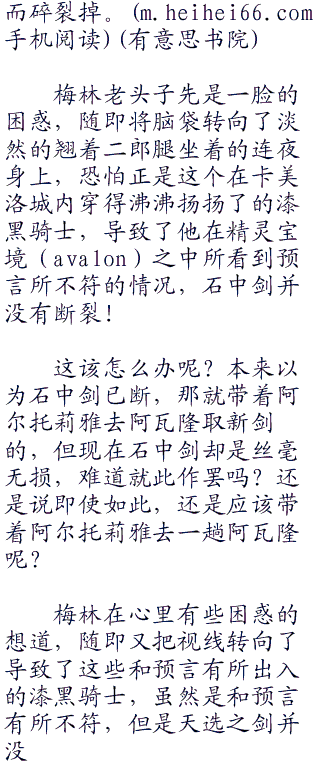 而碎裂掉。(m.heihei66.com
手机阅读)(有意思书院)
梅林老头子先是一脸的
困惑，随即将脑袋转向了淡
然的翘着二郎腿坐着的连夜
身上，恐怕正是这个在卡美
洛城内穿得沸沸扬扬了的漆
黑骑士，导致了他在精灵宝
境（avalon）之中所看到预
言所不符的情况，石中剑并
没有断裂！
这该怎么办呢？本来以
为石中剑已断，那就带着阿
尔托莉雅去阿瓦隆取新剑
的，但现在石中剑却是丝毫
无损，难道就此作罢吗？还
是说即使如此，还是应该带
着阿尔托莉雅去一趟阿瓦隆
呢？
梅林在心里有些困惑的
想道，随即又把视线转向了
导致了这些和预言有所出入
的漆黑骑士，虽然是和预言
有所不符，但是天选之剑并
没